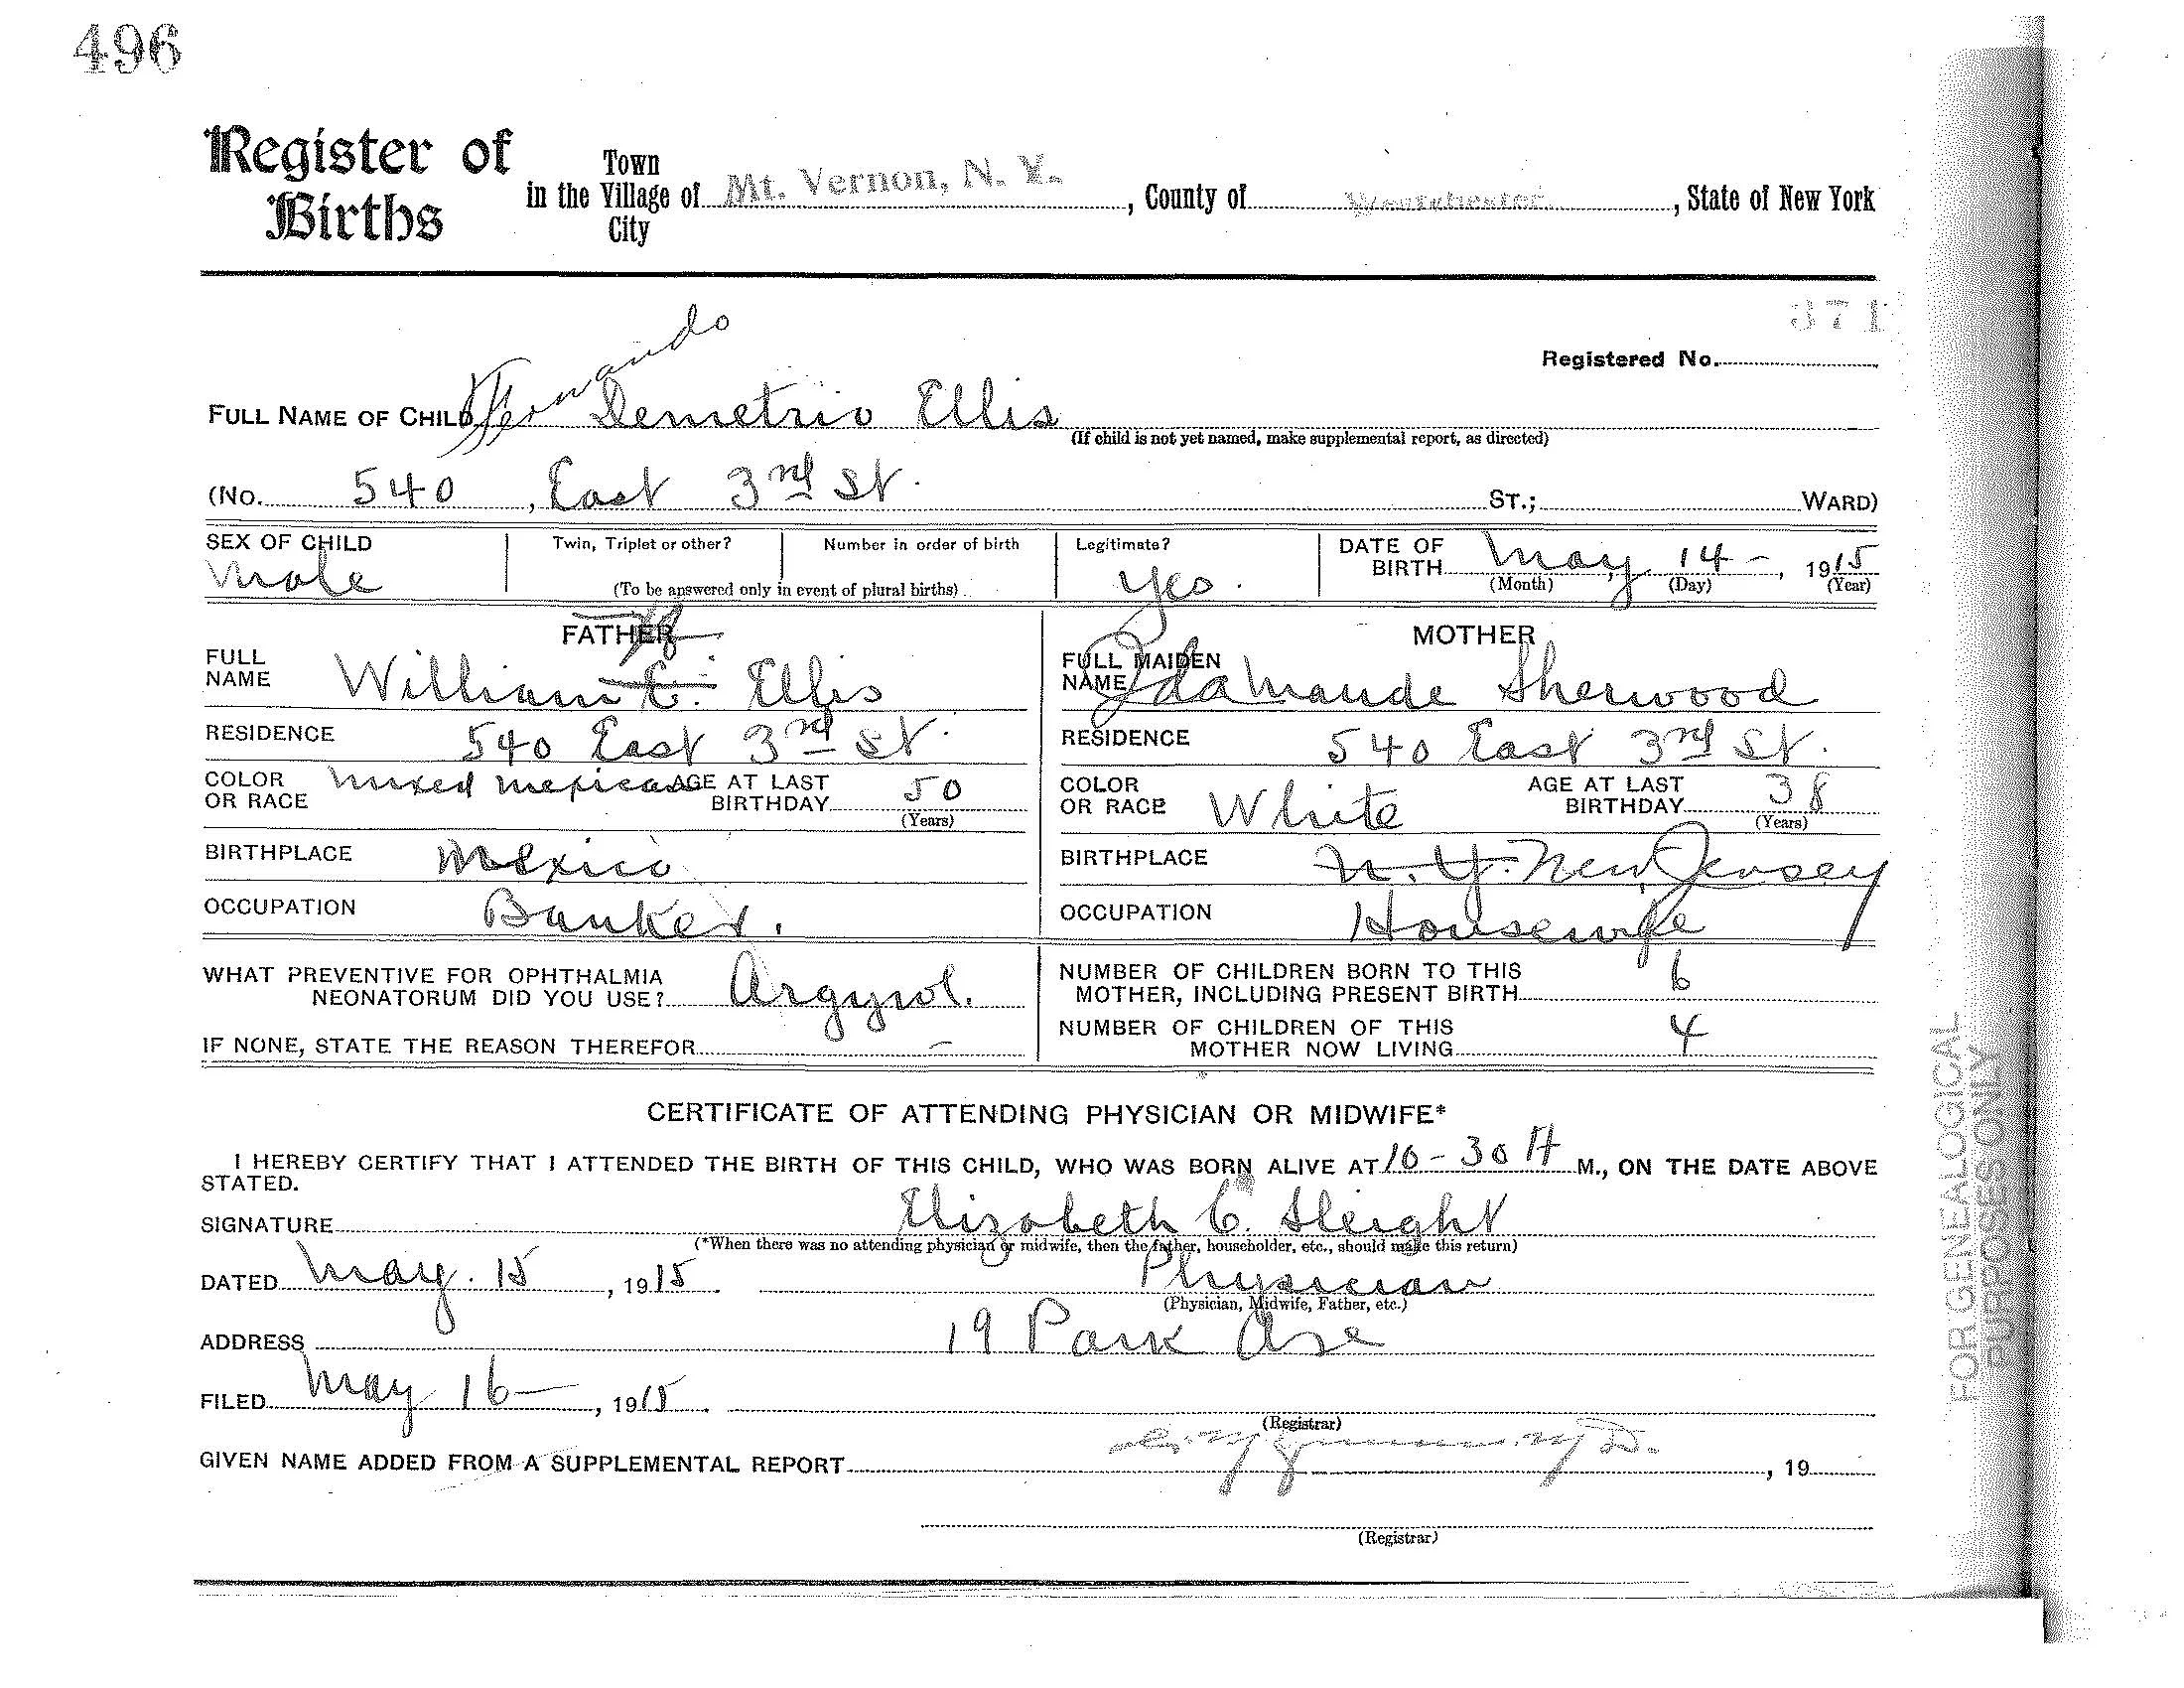 496
Register of Births
Town
in the Village of Mt. Vernon, N. Y., County of Westchester, State of New York
City
371
Registered No.
FULL NAME OF CHILD Fernando Demetrio Ellis
(If child is not yet named, make supplemental report, as directed)
(No. 540, East 3rd St. ST.; WARD)
SEX OF CHILD Male
Twin, Triplet or other?
Number in order of birth
(To be answered only in event of plural births)
Legitimate? Yes.
DATE OF BIRTH May 14-, 1915
(Month) (Day) (Year)
FATHER
FULL NAME William E. Ellis
RESIDENCE 540 East 3rd St.
COLOR OR RACE Mixed Mexican AGE AT LAST BIRTHDAY 50
(Years)
BIRTHPLACE Mexico
OCCUPATION Banker.
MOTHER
FULL MAIDEN NAME Ida Maude Sherwood
RESIDENCE 540 East 3rd St.
COLOR OR RACE White AGE AT LAST BIRTHDAY 38
(Years)
BIRTHPLACE N.Y. New Jersey
OCCUPATION Housewife
WHAT PREVENTIVE FOR OPHTHALMIA
NEONATORUM DID YOU USE? Argyrol.
IF NONE, STATE THE REASON THEREFOR –
NUMBER OF CHILDREN BORN TO THIS
MOTHER, INCLUDING PRESENT BIRTH 6
NUMBER OF CHILDREN OF THIS
MOTHER NOW LIVING 4
CERTIFICATE OF ATTENDING PHYSICIAN OR MIDWIFE*
I HEREBY CERTIFY THAT I ATTENDED THE BIRTH OF THIS CHILD, WHO WAS BORN ALIVE AT 10-30 A M., ON THE DATE ABOVE
STATED.
SIGNATURE Elizabeth C. Sleight
(*When there was no attending physician or midwife, then the father, householder, etc., should make this return)
DATED May. 15, 1915. Physician
(Physician, Midwife, Father, etc.)
ADDRESS 19 Park Ave
FILED May 16-, 1915.
(Registrar)
GIVEN NAME ADDED FROM A SUPPLEMENTAL REPORT , 19
(Registrar)
FOR GENEALOGICAL
PURPOSES ONLY